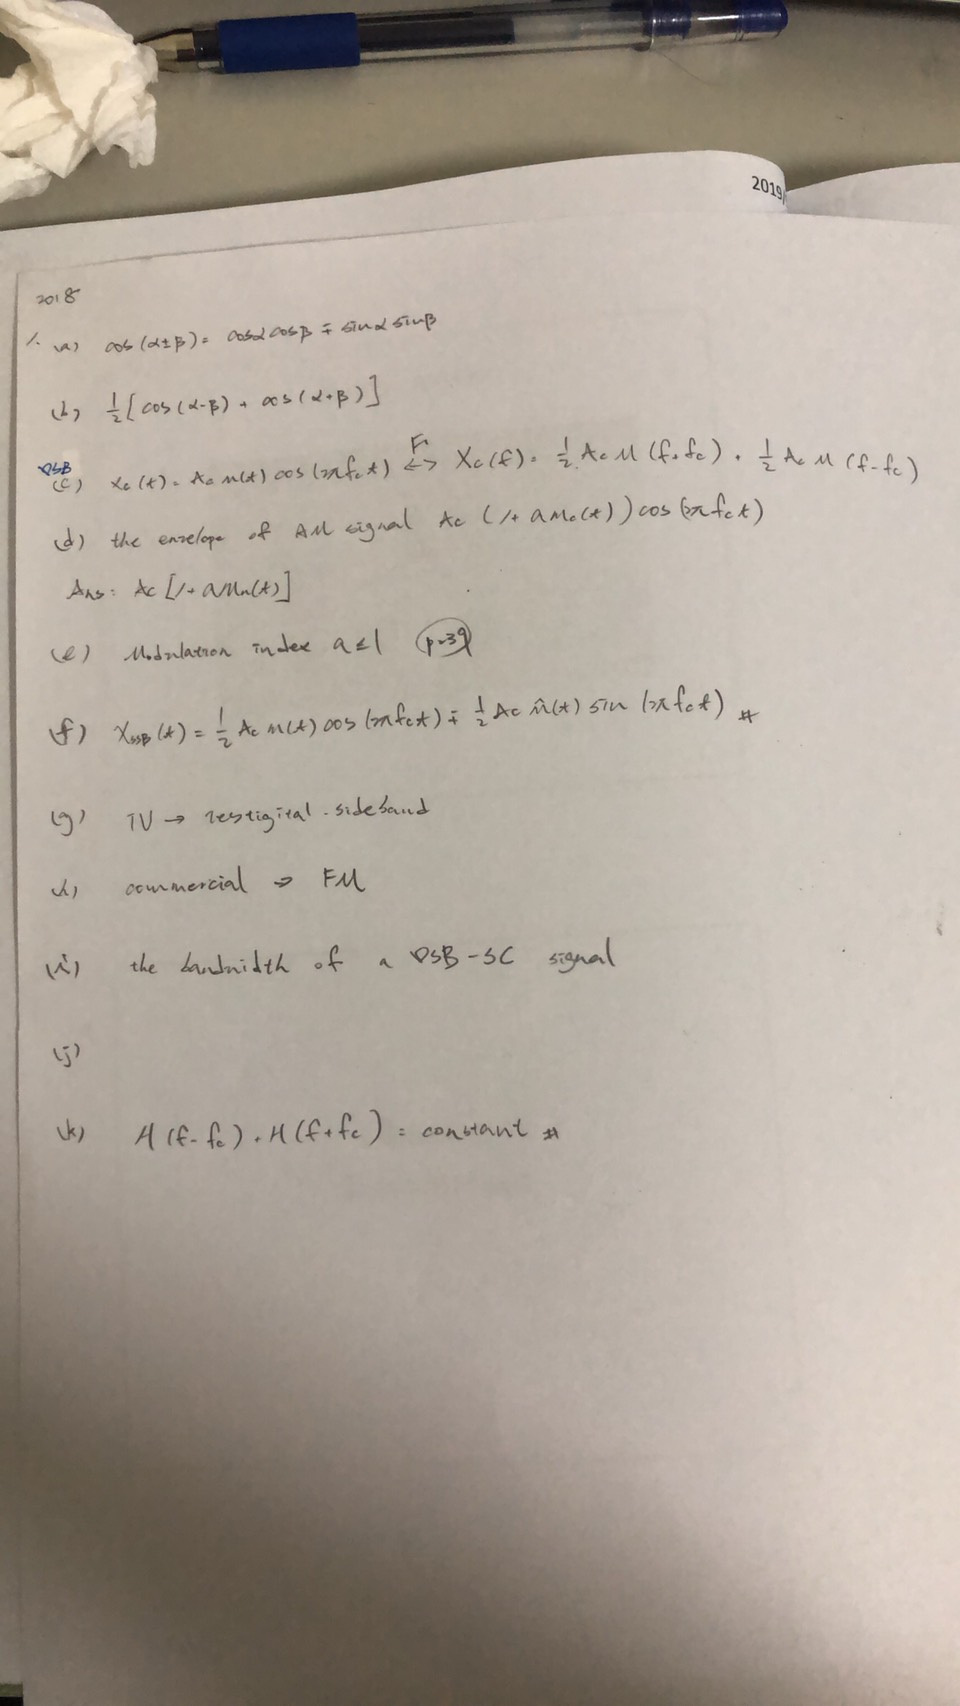 2019
2018
1. (a) cos(α±β) = cosα cosβ ∓ sinα sinβ
(b) ½[cos(α-β) + cos(α+β)]
DSB
(c) Xc(t) = Ac m(t) cos(2πfct) F↔ Xc(f) = ½ Ac M(f+fc) + ½ Ac M(f-fc)
(d) the envelope of AM signal Ac (1+ a mn(t)) cos(2πfct)
Ans: Ac [1+ a mn(t)]
(e) Modulation index a≤1 p.39
(f) XSSB(t) = ½ Ac m(t) cos(2πfct) ∓ ½ Ac m̂(t) sin(2πfct) #
(g) TV → vestigital sideband
(h) commercial ⇒ FM
(i) the bandwidth of a DSB-SC signal
(j)
(k) H(f-fc) + H(f+fc) = constant #